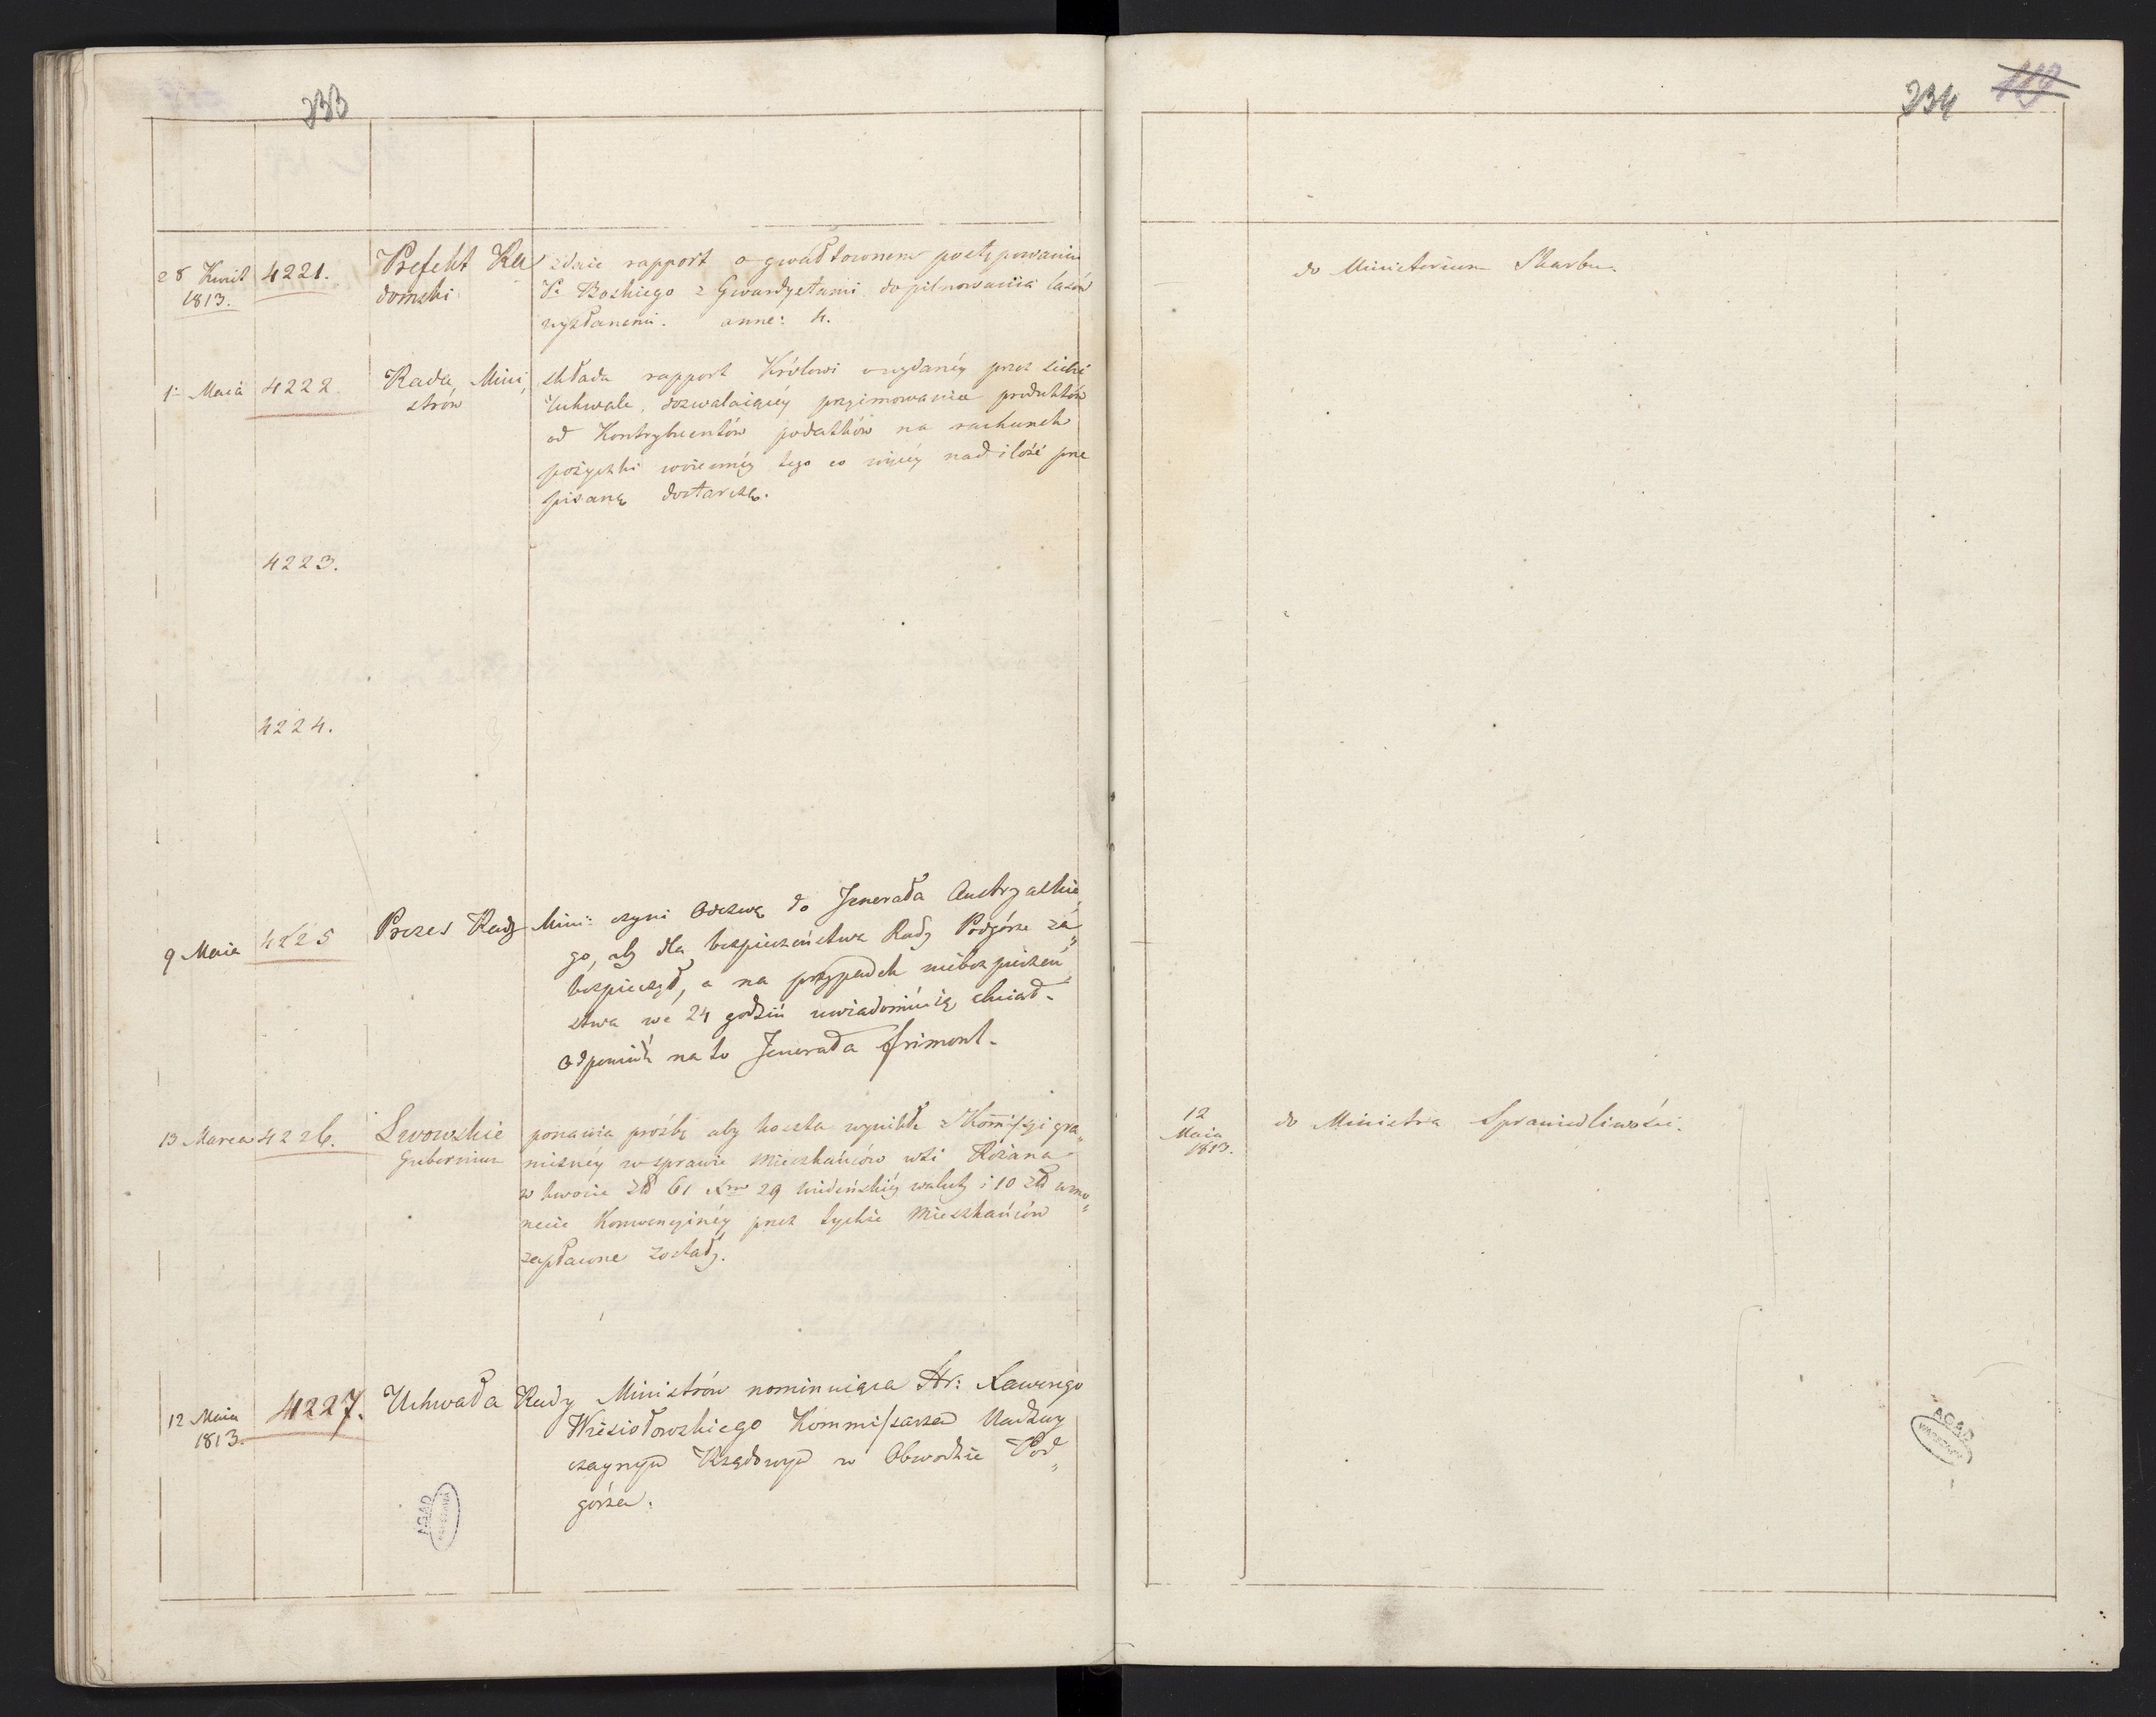 233
28 Kwiet 1813. 4221. Prefekt Ra
domski
zdaie rapport o gwałtownem postępowaniu
P. Boskiego z Gwardystami do pilnowania lasów
wysłanemi. anne: 4.
do Ministerium Skarbu.
1. Maia 4222. Rada Mini
strów
składa rapport Królowi o wydanéy przez siebie
Uchwale, dozwalaiącéy przyimowania produktów
od Kontrybuentów podatków na rachunek
pożyczki woienney tego co więcéy nad ilość prze
pisaną dostarczą.
4223.
4224.
9 Maia 4225 Prezes Rady Mini: czyni Odezwę do Jenerała Austryackie
go, aby dla bezpieczeństwa Rady Podgórze za
bezpieczył, a na przypadek niebezpieczeń
stwa we 24 godzin uwiadomić ią chciał.
Odpowiedź na to Jenerała Frimont.
13 Marca 4226. Lwowskie
Gubernium
ponawia prośbę aby koszta wynikłe z Kommissyi gra
niczney w sprawie Mieszkańców wsi Rożana
w kwocie Zł 61 Xr 29 wideńskiéy waluty i 10 Zł w mo
necie Konwencyinéy przez tychże Mieszkańców
zapłacone zostały.
12
Maia
1813.
do Ministra Sprawiedliwości.
12 Maia
1813.
4227. Uchwała Rady Ministrów nominuiąca Hr: Xawerego
Wiesiołowskiego Kommissarza Nadzwy
czaynym Rządowym w Obwodzie Pod
górza.
AGAD
WARSZAWA
234
AGAD
WARSZAWA